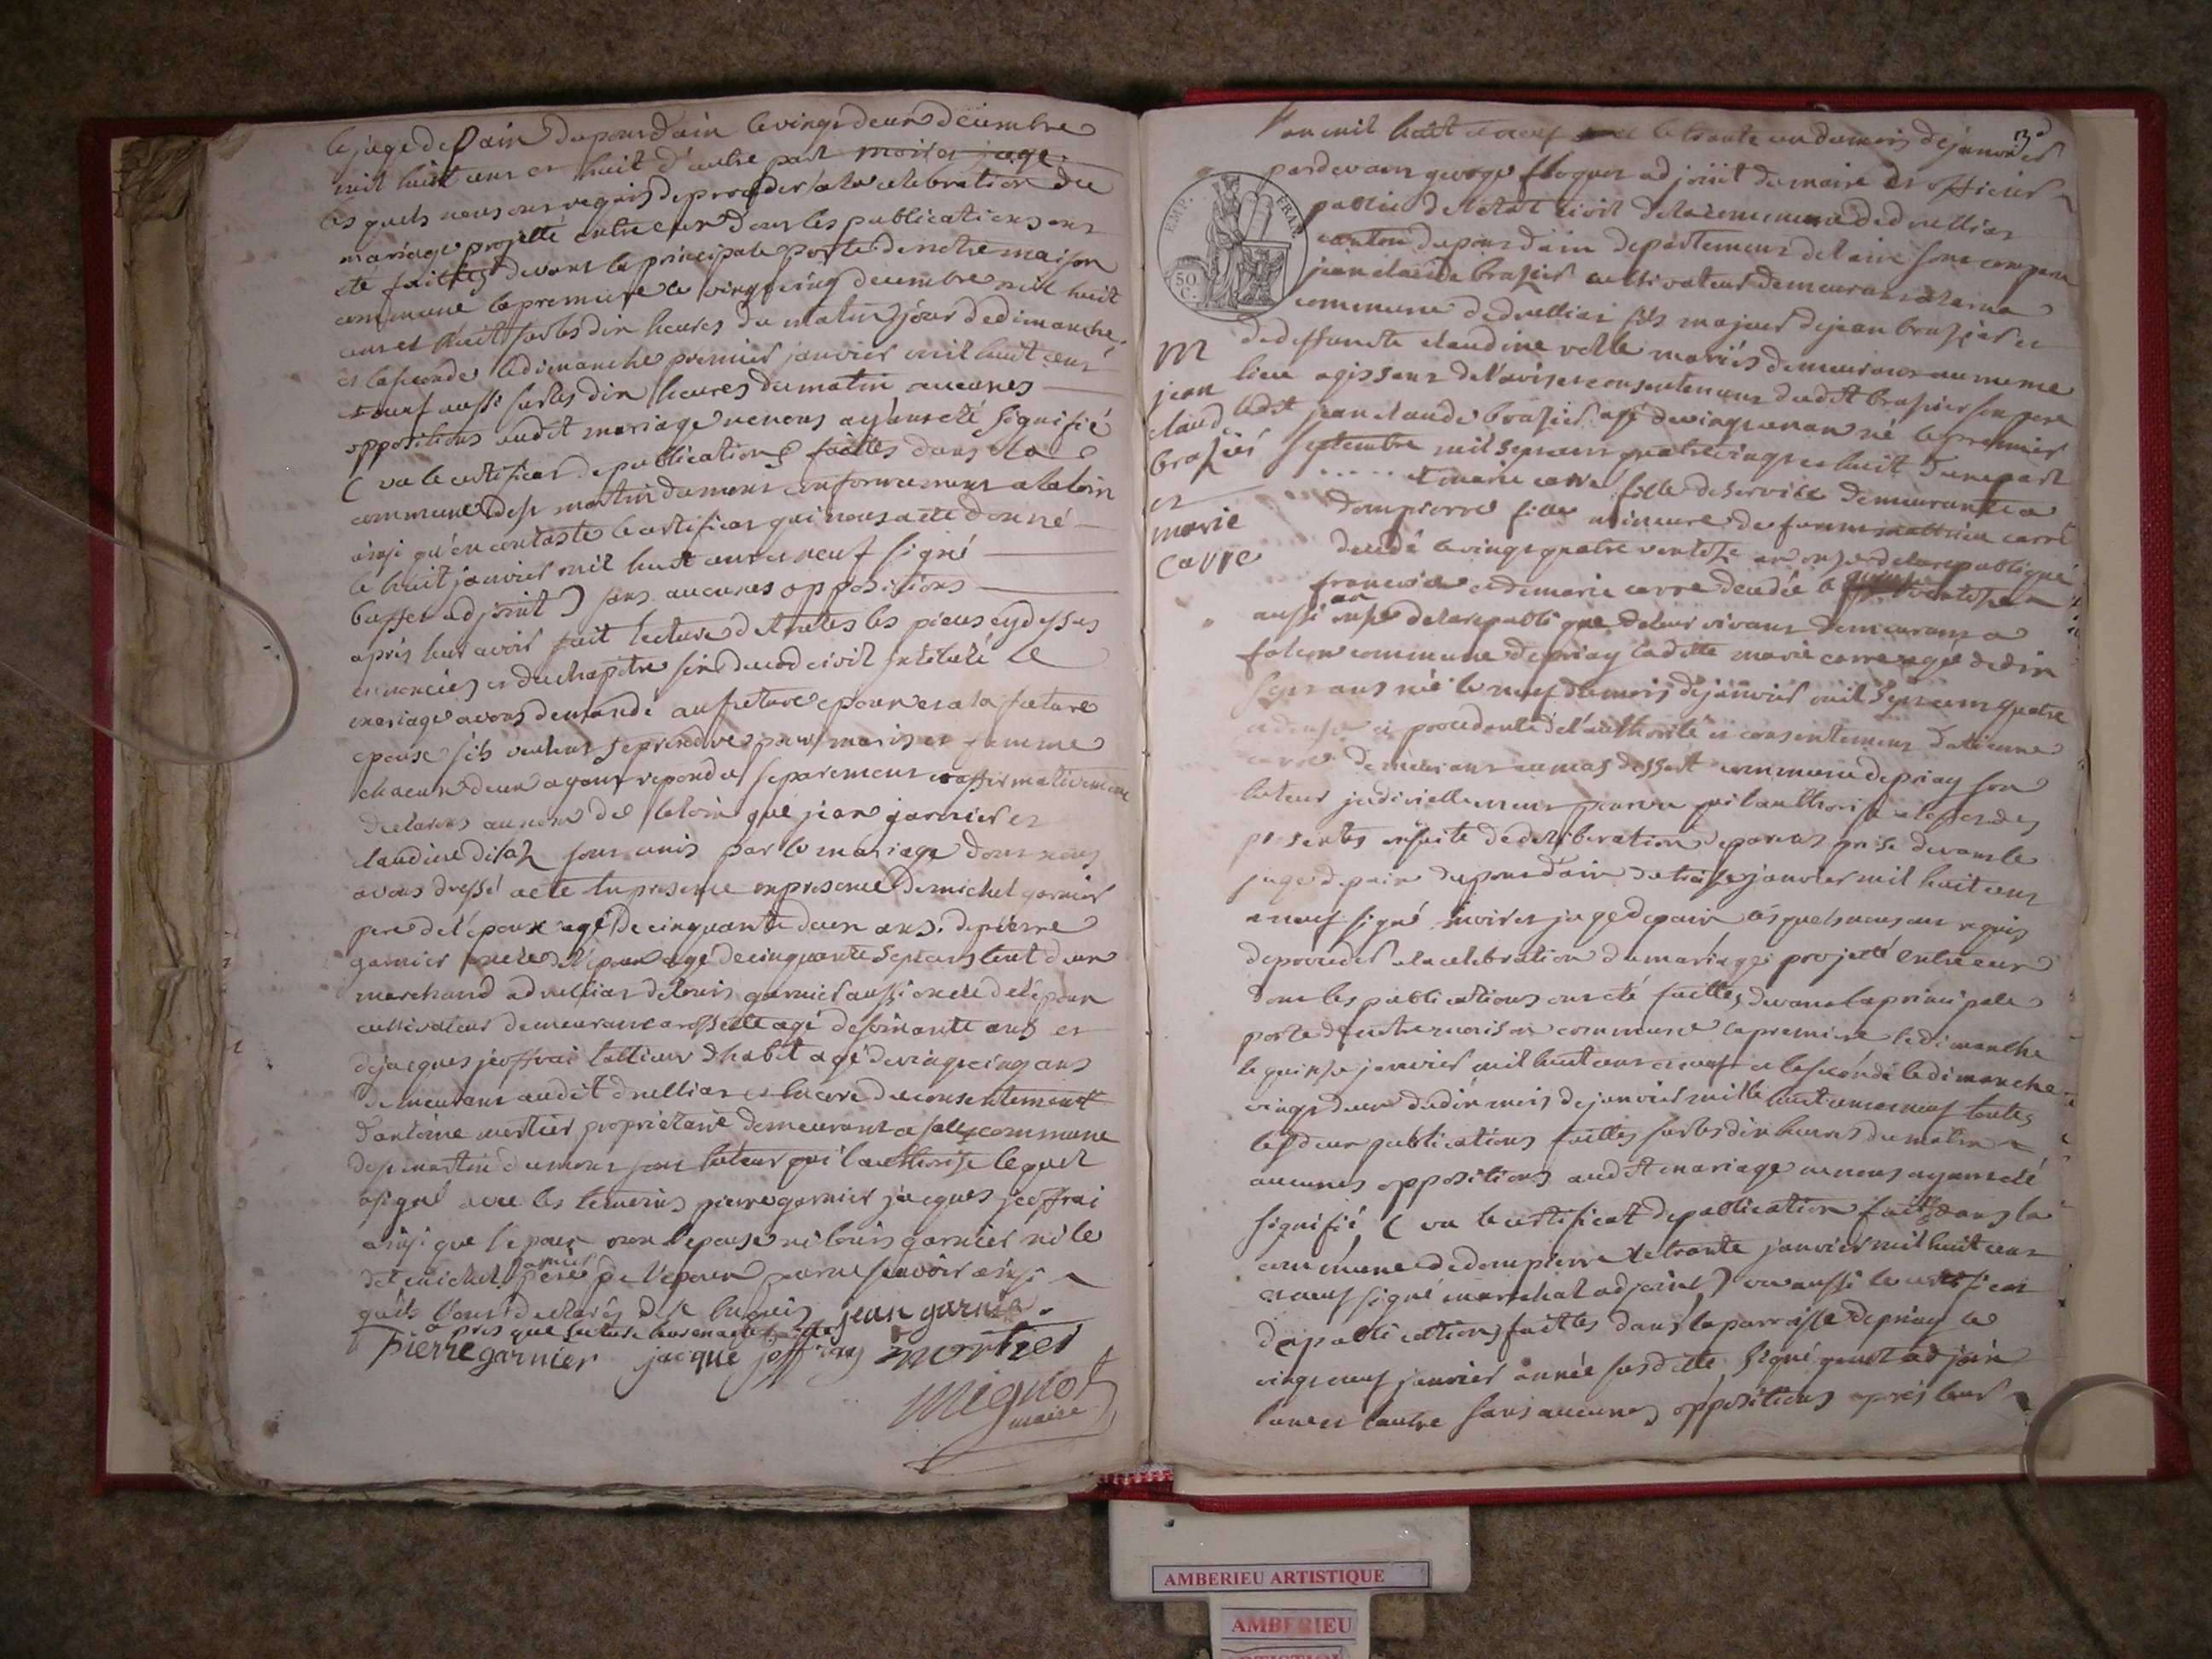 le juge de Paix du pont d'ain le vingt deux decembre
mil huit cent et huit d'autre part moiret juge
les quels nous ont requis de proceder a la celebration du
mariage projetté entre eux dont les publications ont
été faittes devant la principale porte de notre maison
commune la premiere le vingt cinq decembre mil huit
cent et huit sur les dix heures du matin jour de dimanche
et la seconde le dimanche premier janvier mil huit cent
et neuf aussi sur les dix heures du matin aucunes
oppositions audit mariage ne nous ayant eté signifié
( vu le certificat de publications faittes dans la
commune de st martin du mont conformement a la loix
ainsi qu'en contaste le certificat qui nous a eté donné
le huit janvier mil huit cent et neuf signé
adjoint ) sans aucunes oppositions
apres leur avoir fait lecture de toutes les pieces cy dessus
enoncées et du chapitre six du cod civil intitulé le
mariage avons demandé au future epoux et a la future
epouse s'ils veulent se prendre pour maris et femme
chacun deux ayant repondu separement et affirmativement
declarons au nom de la loix que jean garnier et
claudine sont unis par le mariage dont nous
avons dressé acte en presence de michel garnier
pere de l'epoux agé de cinquante deux ans. de pierre
garnier oncle de l'epoux agé de cinquante sept ans tout deux
marchand a druillias de louis garnier aussi oncle de l'epoux
cultivateur demeurant a agé de soixante ans et
de jacques jeoffrai tallieur d'habit agé de vingt cinq ans
demeurant audit druillias et encore du consentement
d'antoine mortier propriétaire demeurant a commune
de st martin du mont son tuteur qui l'authorise lequel
a signé avec les temoins pierre garnier jacques jeoffrai
ainsi que l'epoux non l'epouse ni louis garnier ni le
dit michel garnier pere de l'epoux pour ne sçavoir ainsi
qu'ils l'ont declarés de ce enquis jean garnier
apres que lecture leur en a eté faitte
Pierre garnier jacque joffray mortier
Mignot
maire
3
l'an mil huit et neuf le trante un du mois de janvier
pardevant george floquet adjoint du maire et officier
public de l'etat civil de la commune de druillias
canton du pont d'ain departement de l'ain sont comparu
EMP. FRAN.
50 C.
jean claude brasier cultivateur demeurant a
commune de druillias fils majeur de jean brasier et
de deffuncte claudine mariés demeurant au meme
lieu agissant de l'avis et consentement dudit brasier son pere
ledit jean claude brasier agé de vingt un an né le premier
septembre mil sept cent quatre vingt et huit d'une part
M
jean
claude
brasier
et
marie
carre
et marie carre fille de service demeurante a
dompierre fille mineure de furent carré
decedé le vingt quatre ventose an onze de la republique
francoise et de marie carre decedée le quinze ventose
aussi an onze de la republique de leur vivant demeurant a
commune de priay laditte marie carre agée de dix
sept ans née le neuf du mois de janvier mil sept cent quatre
et procedante de l'authorité et consentement d'etienne
carré demeurant au mas commune de priay son
tuteur judiciellement pourvu qui l'authorise a l'effet des
presentes ensuite de deliberation de parents prise devant le
juge de paix du pont d'ain du treise janvier mil huit cent
et neuf signé moiret juge de paix les quels nous ont requis
de proceder a la celebration du mariage projetté entre eux
dont les publications ont eté faittes devant la principale
porte de notre maison commune la premiere le dimanche
le quinse janvier mil huit cent et neuf et la seconde le dimanche
vingt deux dudit mois de janvier mille huit cent et neuf toutes
les deux publications faittes sur les dix heures du matin
aucunes oppositions audit mariage ne nous ayant eté
signifié, ( vu le certificat de publication faittes dans la
commune de dompierre le trante janvier mil huit cent
et neuf signé marechal adjoint ) vu aussi le certificat
de publications faittes dans la parroisse de priay le
vingt neuf janvier année susditte signé adjoin
l'une et l'autre sans aucunes oppositions après leur
AMBERIEU ARTISTIQUE
AMBERIEU
ARTISTIQUE